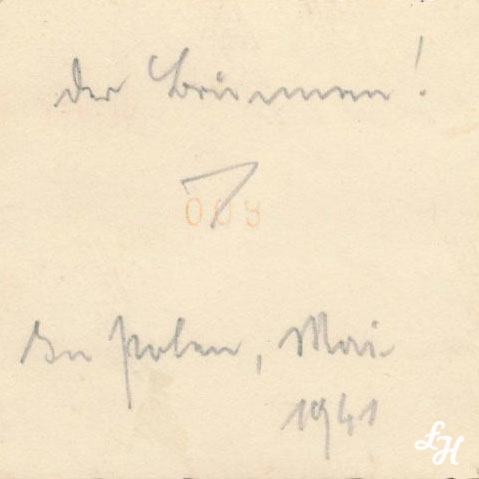 der Brunnen!
7
008
In Polen, Mai
1941
LH